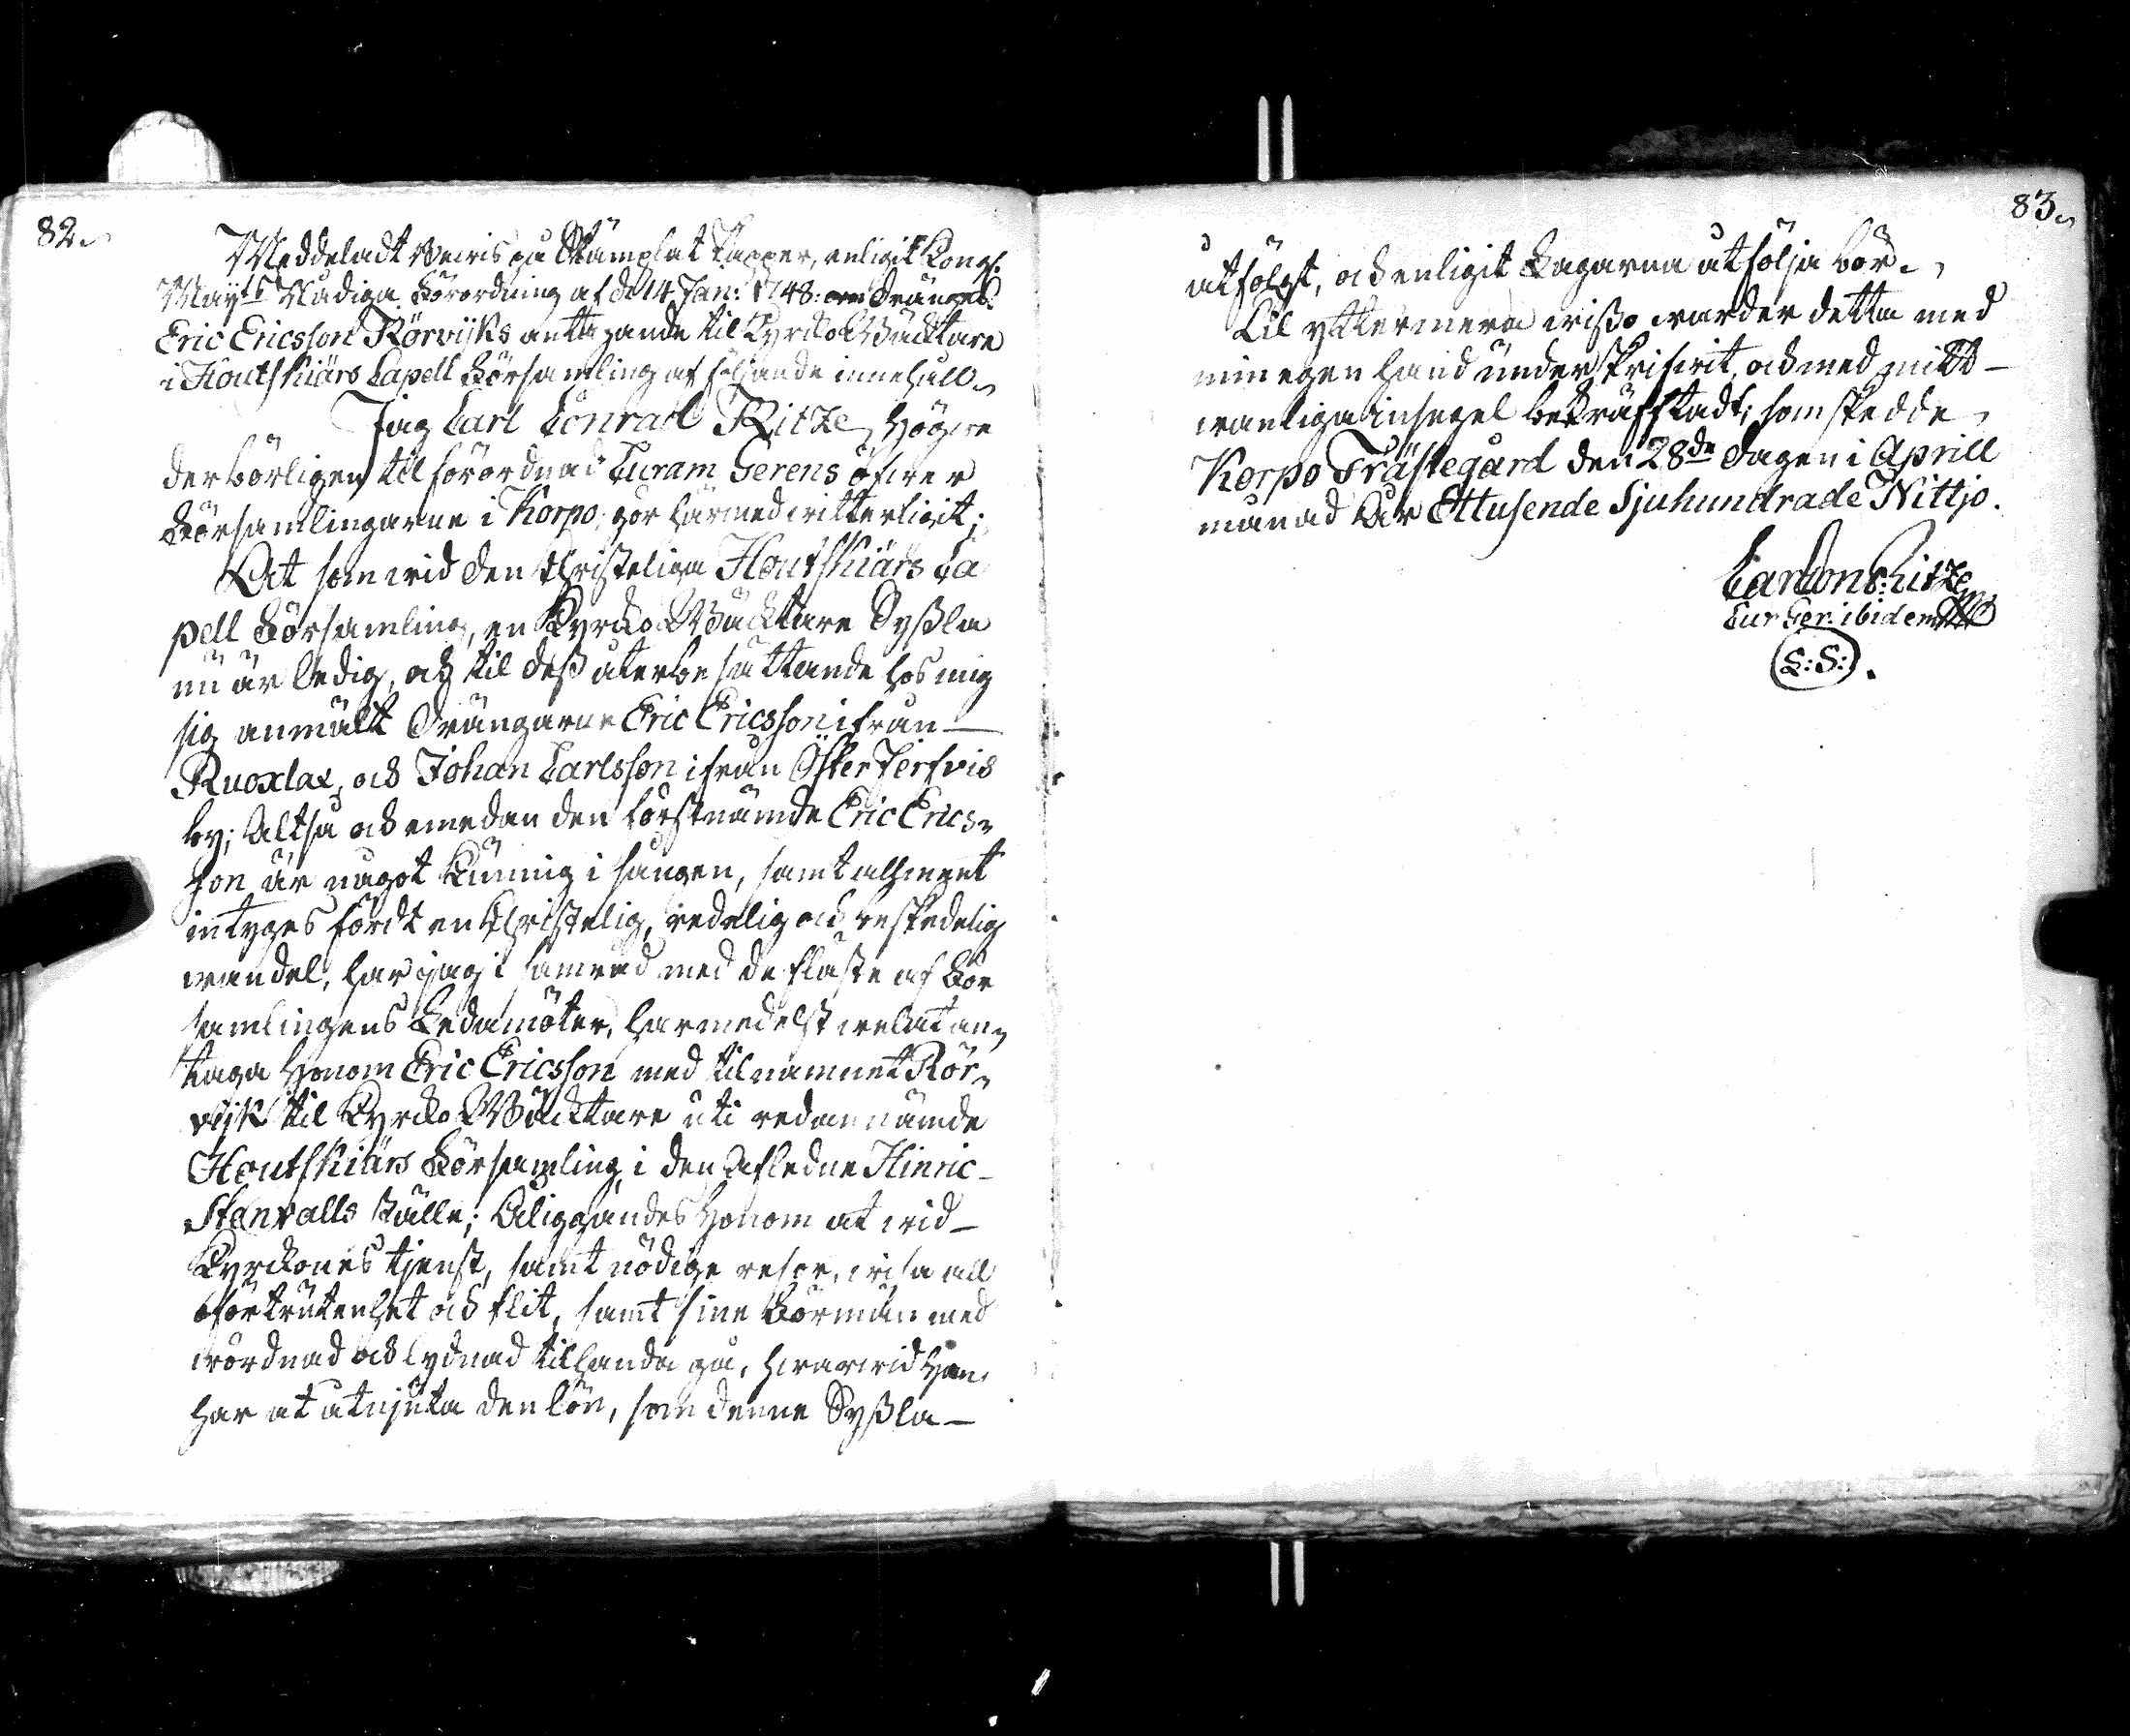 82.
Meddeladt Bewis på Stämplat Papper, enligit Kongl.
Mayts Nådiga Förordning af d. 14 Jan: 1748. om Drängens
Eric Ericsson Rörvijks antagande til KyrckoWäcktare
i Houtskiärs Capell Församling af följande innehåll.
Jag Carl Conrad Ritze, Högwe
derbörligen til förordnad Curam Gerens öfwer
Församlingarne i Korpo, gör härmed witterligit;
At som wid den Christeliga Houtskiärs Ca
pell Församling, en KyrckoWäcktare Sysßla
nu är ledig, och til deß återbesättande hos mig
sig anmält Drängarne Eric Ericsson ifrån
Ruoxlax, och Johan Carlsson ifrån Öster Jerfvis
by; Altså och emedan den förstnämde Eric Erics-
son är något kunnig i sången, samt allment
intyges fördt en Christelig, redelig och beskedelig
wandel, har jag i samråd med de flästa af För
samlingens Ledamöter, härmedelst welat an-
taga honom Eric Ericsson med tilnamnet Rör-
vijk til KyrckoWäcktare uti redannämde
Houtskiärs Församling, i den Afledne Hinric
Stenvalls ställe; Åliggandes honom at wid
Kyrckones tjenst, samt nödige resor, wisa all
oförtrutenhet och flit, samt sine Förmän med
wördnad och lydnad tilhanda gå, hwarwid Han
har at åtnjuta den lön, som denne Syßla
83.
utfölgt, och enligit Lagarna utfölja bör.
Til yttermera wißo warder detta med
min egen hand underskrifwit, och med mitt
wanliga insegel bekräfftadt; som skedde
Korpo Prästegård den 28de Dagen i Aprill
månad År Ettusende Sjuhundrade Nittjo.
Carl Conr: Ritze
Cur Ger: ibidem
L:S: